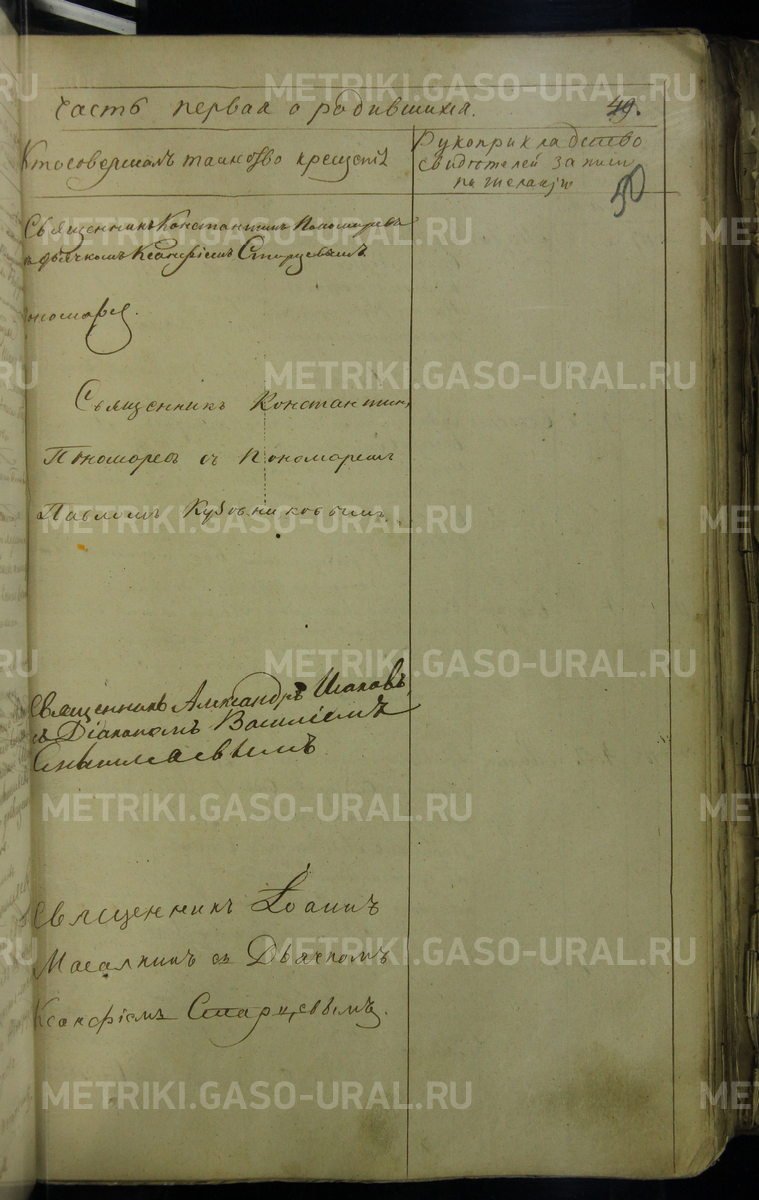 Часть первая о родившихся.
49.
Кто совершалъ таинство крещенія
Рукоприкладство
свидѣтелей записи
по желанію
50
Священникъ Константинъ Пономаревъ
съ дьячкомъ Ксанфіемъ Старцевымъ
Священникъ Константинъ
Пономаревъ съ Пономаремъ
Павломъ Кузовниковымъ
Священникъ Александръ
съ Діакономъ Василіемъ
Священникъ Іоаннъ
Масалкинъ съ Дьячкомъ
Ксанфіемъ Старцевымъ.
METRIKI.GASO-URAL.RU